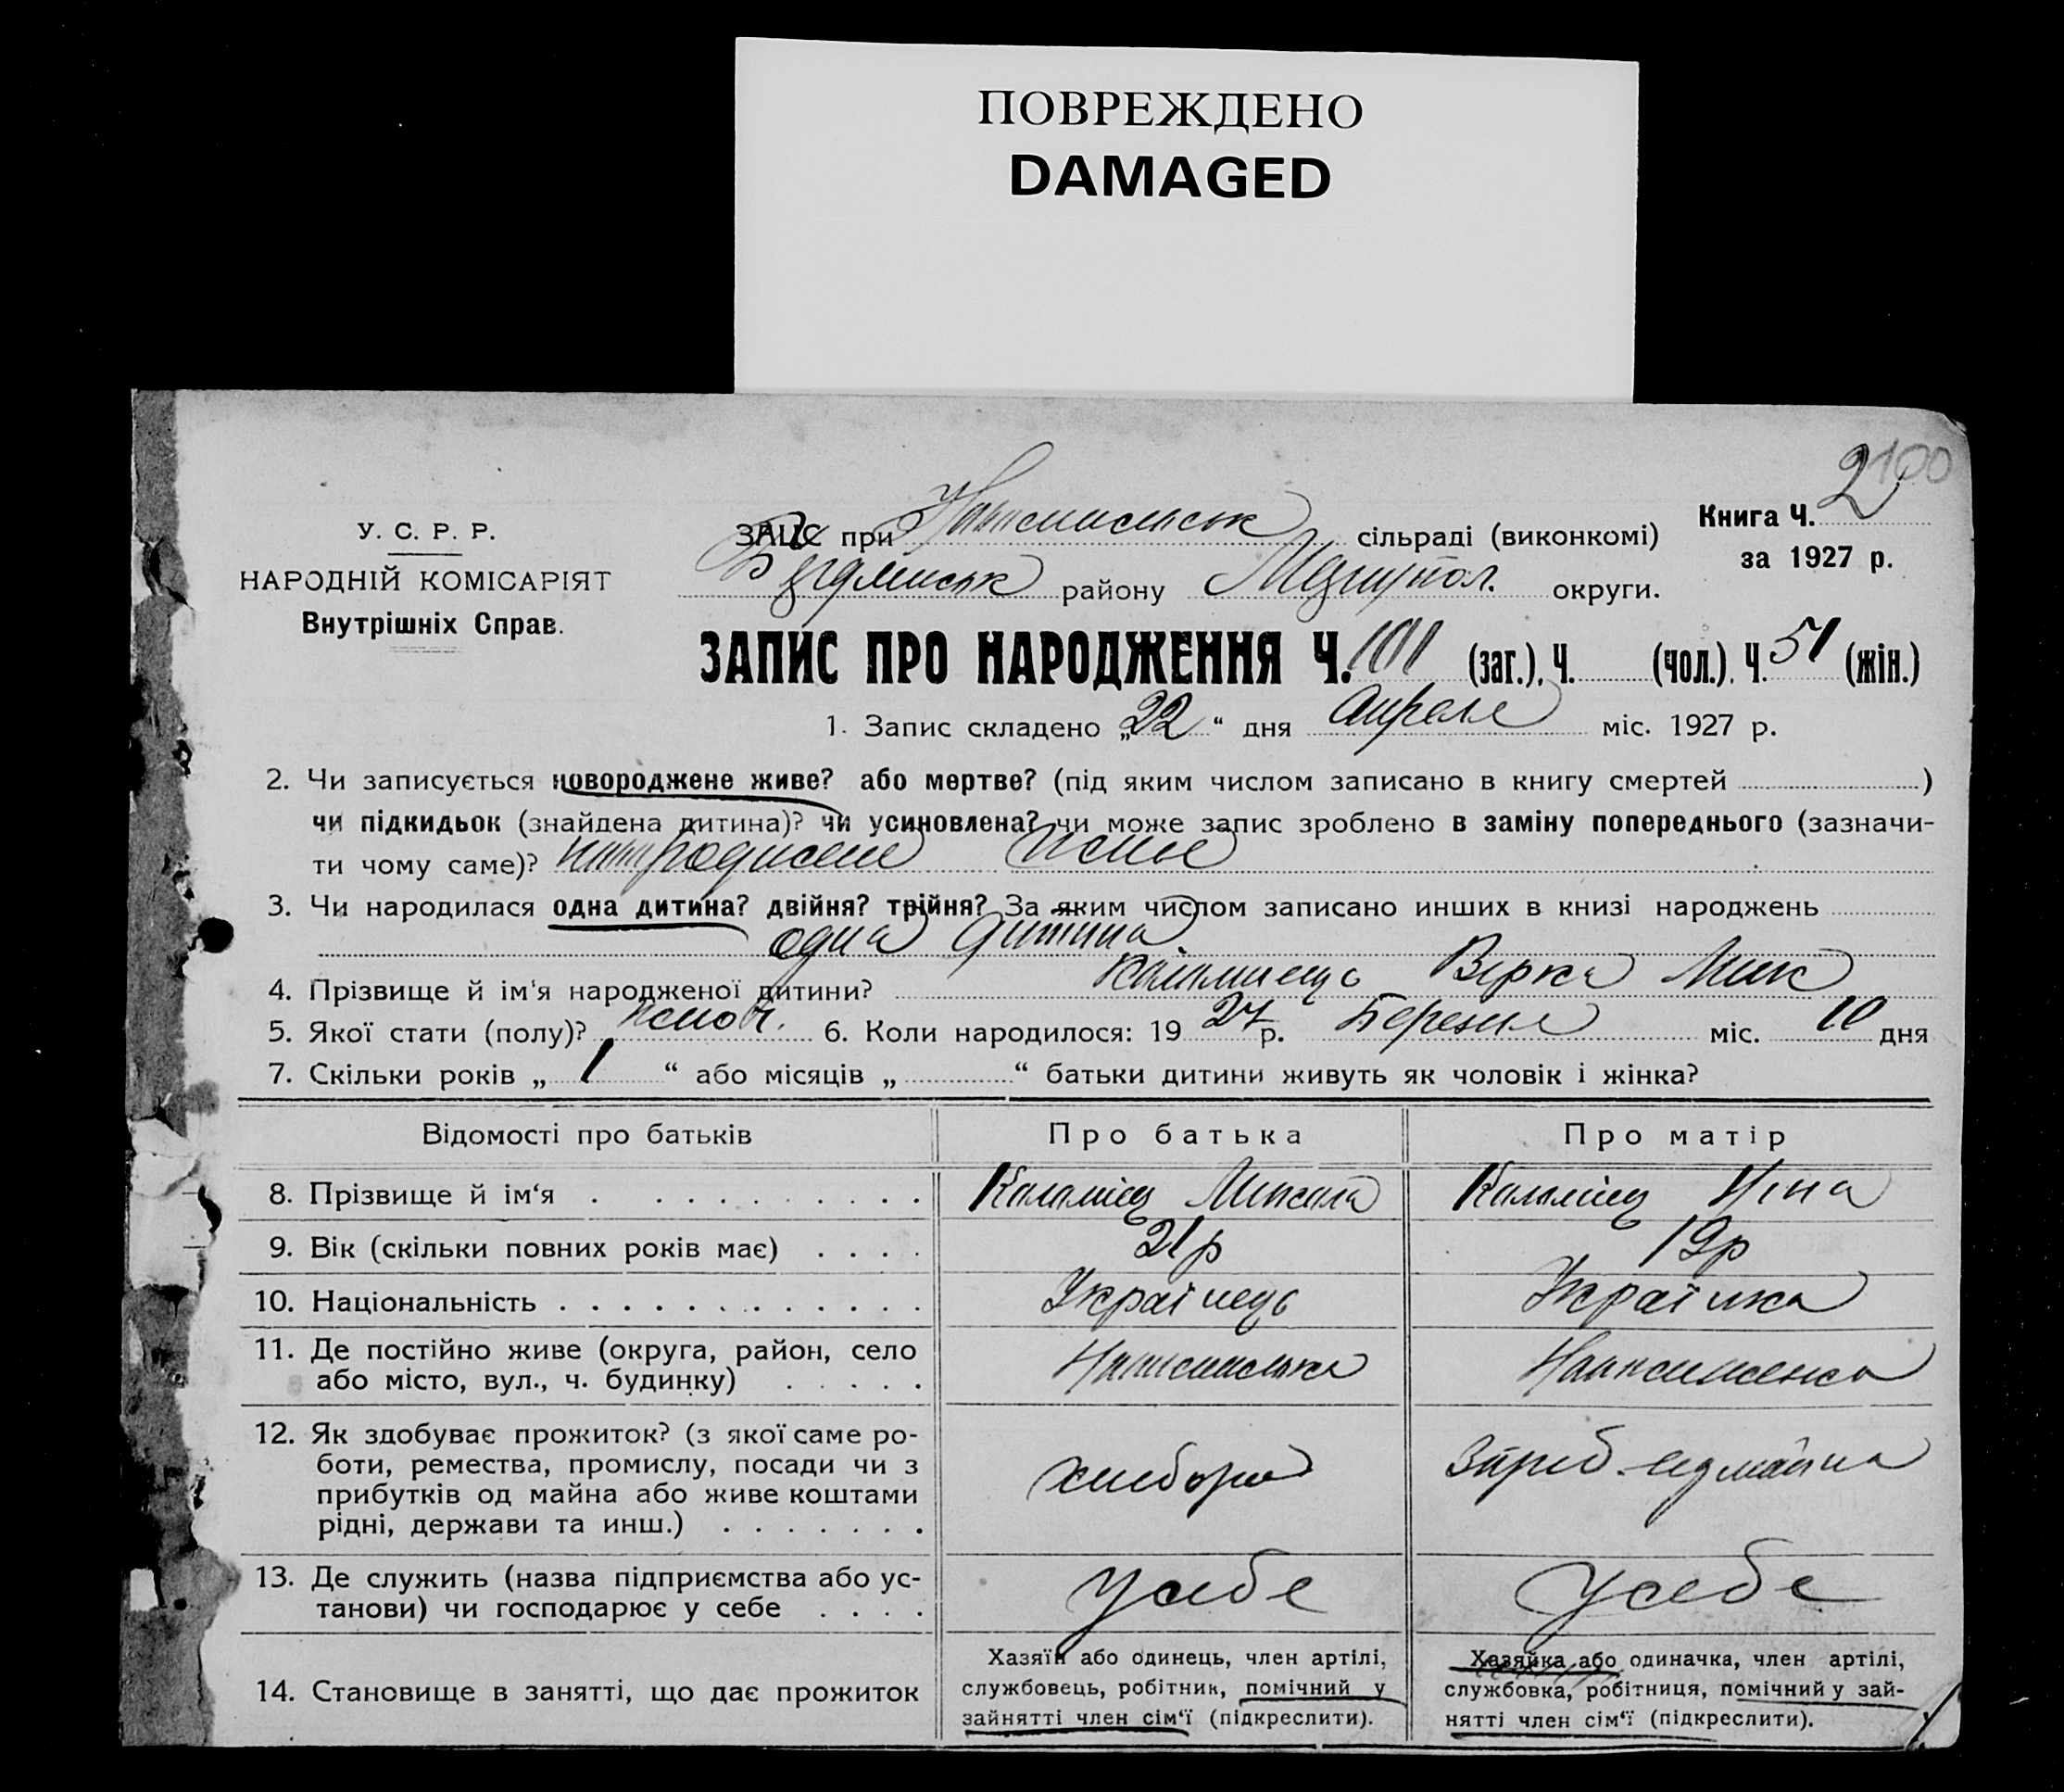 ПОВРЕЖДЕНО
DAMAGED
2 100
У. С. Р. Р.
НАРОДНІЙ КОМІСАРІЯТ
Внутрішніх Справ.
ЗАЦС при сільраді (виконкомі)
району округи.
Книга Ч. 2
за 1927 р.
ЗАПИС ПРО НАРОДЖЕННЯ Ч. 101 (заг.), Ч. (чол.), Ч. 51 (жін.)
1. Запис складено „22“ дня Апреля міс. 1927 р.
2. Чи записується новороджене живе? або мертве? (під яким числом записано в книгу смертей )
чи підкидьок (знайдена дитина)? чи усиновлена? чи може запис зроблено в заміну попереднього (зазначи-
ти чому саме)?
3. Чи народилася одна дитина? двійня? трійня? За яким числом записано инших в книзі народжень
одна дитина
4. Прізвище й ім'я народженої дитини? Вірка Мик
5. Якої стати (полу)? 6. Коли народилося: 19 27 р. Березня міс. 10 дня
7. Скільки років „ 1 “ або місяців „ “ батьки дитини живуть як чоловік і жінка?
Відомості про батьків Про батька Про матір
8. Прізвище й ім‘я Коломієц Микола Коломієц Ніна
9. Вік (скільки повних років має) 21р 19р
10. Національність Українець Українка
11. Де постійно живе (округа, район, село
або місто, вул., ч. будинку)
12. Як здобуває прожиток? (з якої саме ро-
боти, ремества, промислу, посади чи з
прибутків од майна або живе коштами
рідні, держави та инш.) хлібороб
13. Де служить (назва підприємства або ус-
танови) чи господарює у себе У себе У себе
14. Становище в занятті, що дає прожиток
Хазяїн або одинець, член артілі,
службовець, робітник, помічний у
зайнятті член сім‘ї (підкреслити).
Хазяйка або одиначка, член артілі,
службовка, робітниця, помічний у зай-
нятті член сім‘ї (підкреслити).